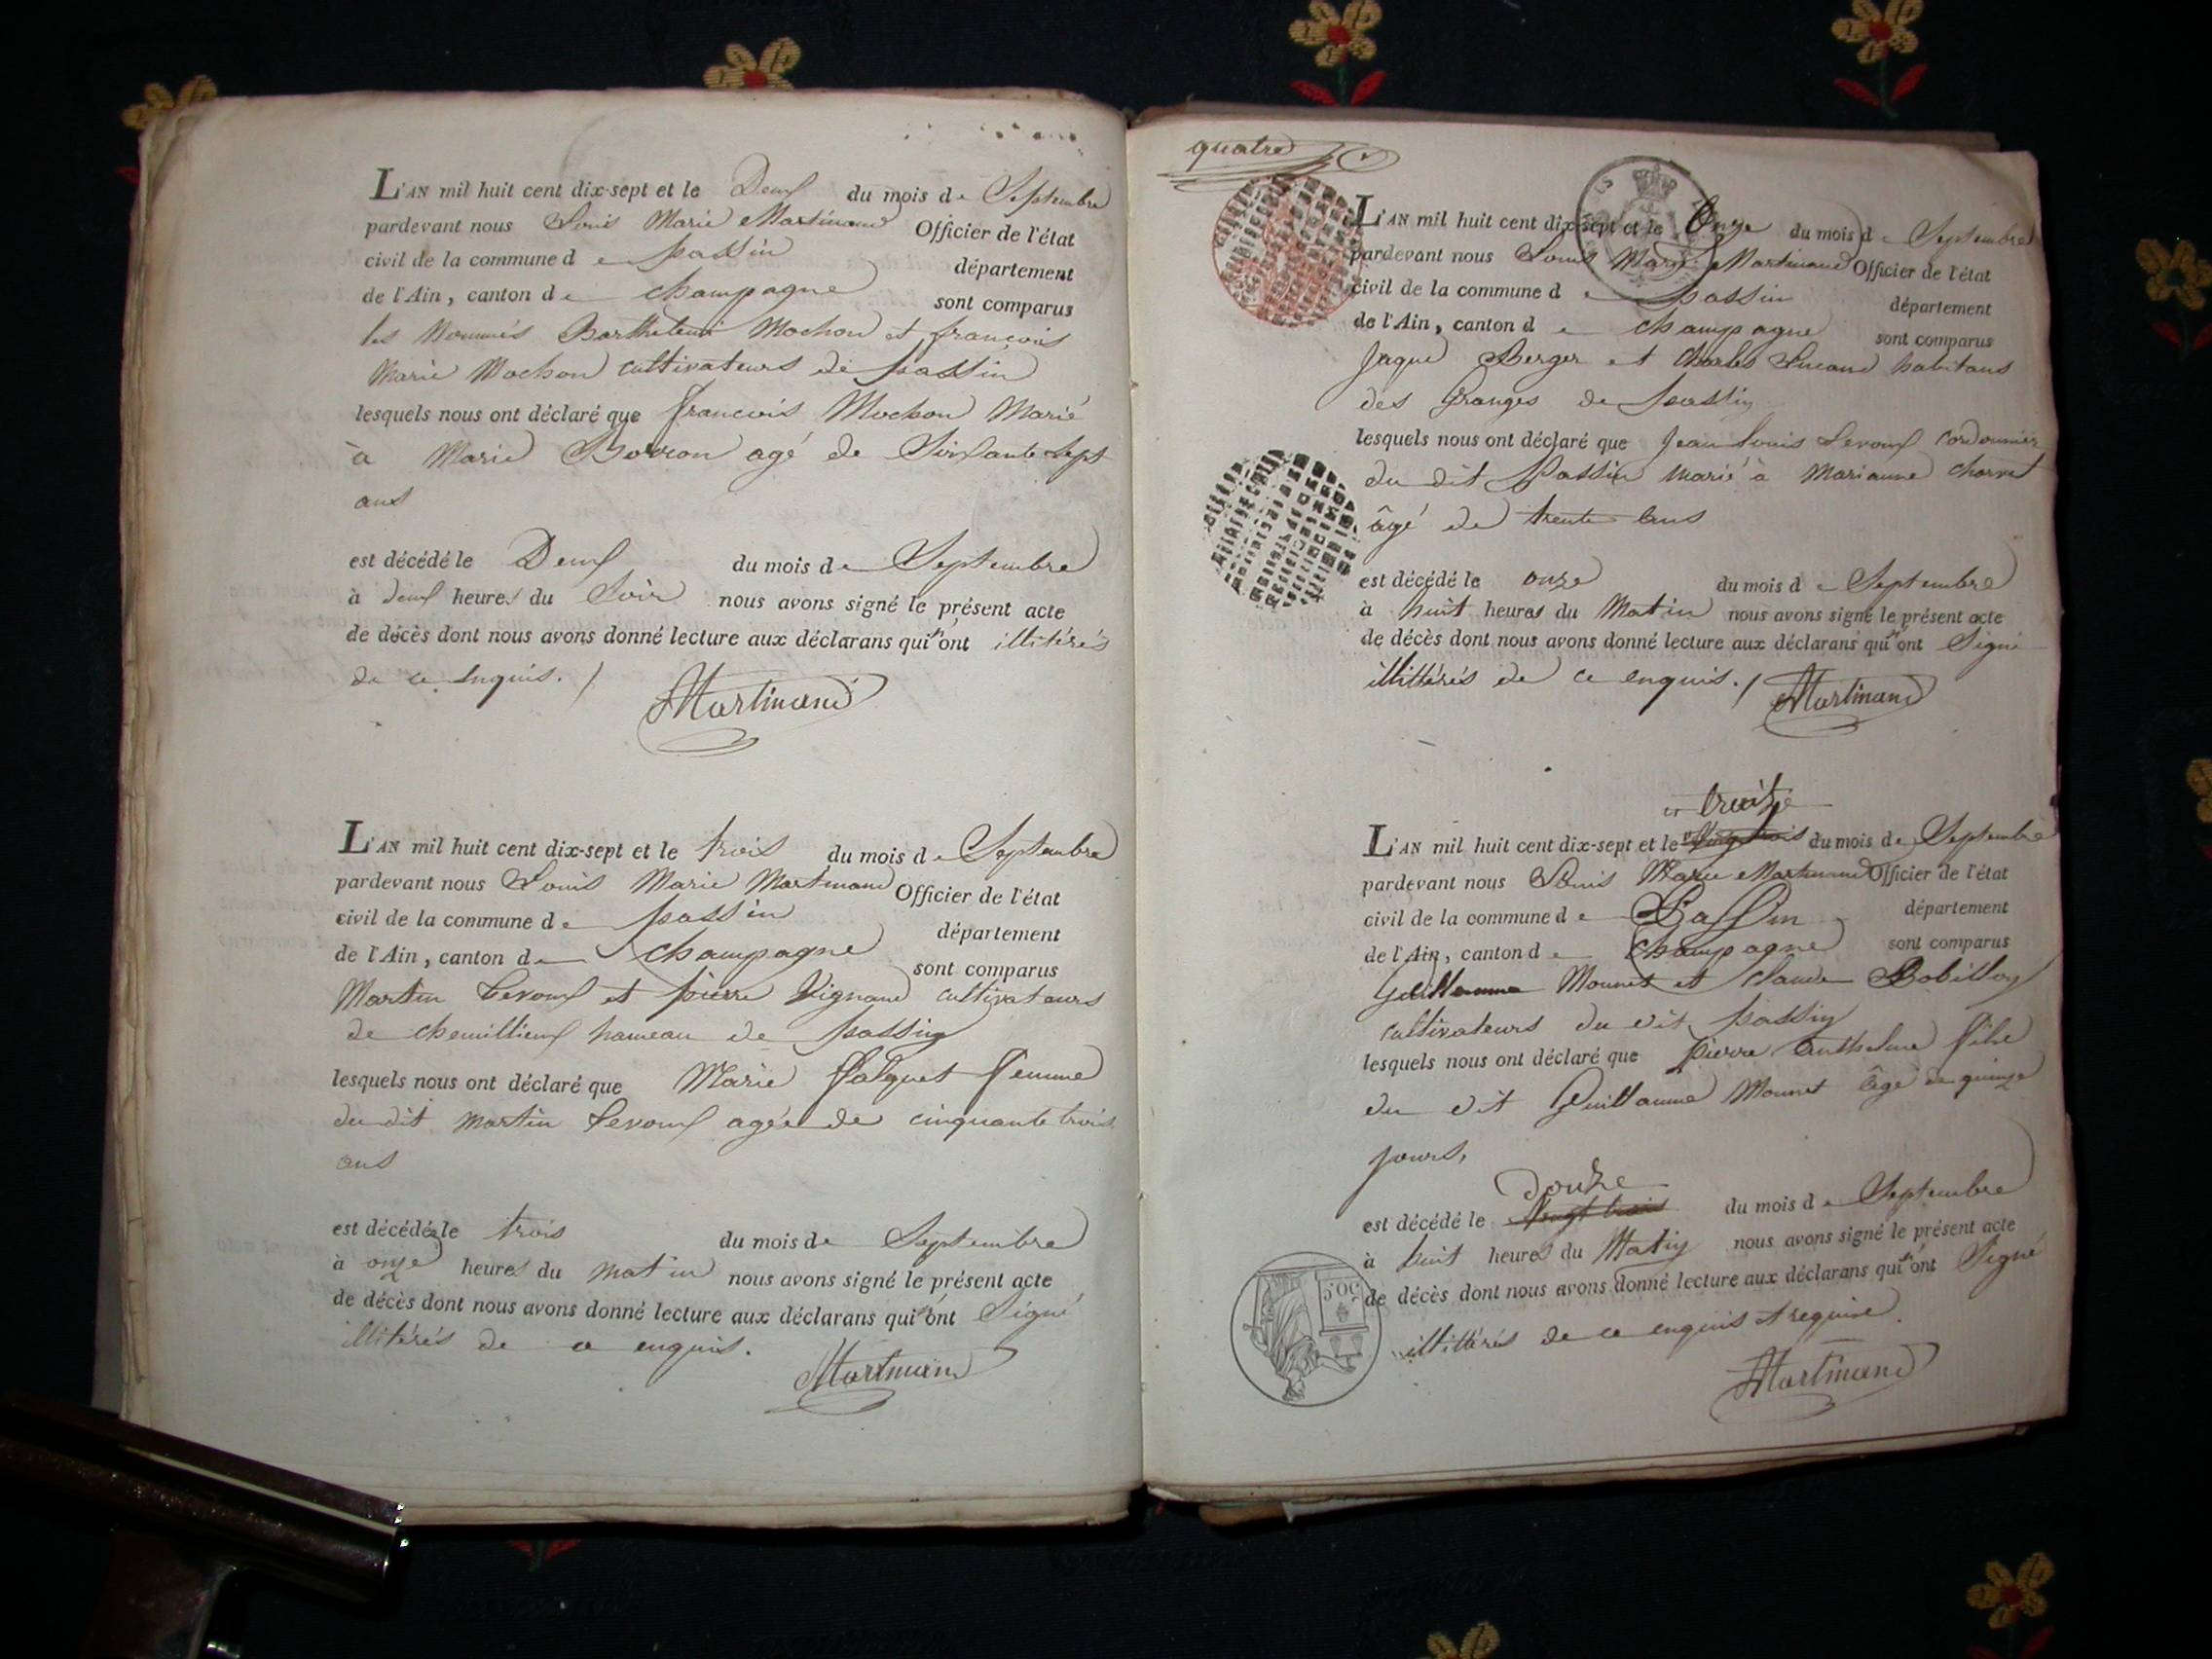 L'AN mil huit cent dix-sept et le Deux du mois de Septembre
pardevant nous Louis Marie Martinand Officier de l'état
civil de la commune de passin département
de l'Ain, canton de champagne sont comparus
les Nommés Barthelemi Mochon et françois
Marie Mochon cultivateurs de passin
lesquels nous ont déclaré que francois Mochon Marié
à Marie Borron agé de Soixante Sept
ans
est décédé le Deux du mois de Septembre
à deux heures du Soir nous avons signé le présent acte
de décès dont nous avons donné lecture aux déclarans qui n'ont illitérés
de ce enquis. /
Martinand
L'AN mil huit cent dix-sept et le trois du mois de Septembre
pardevant nous Louis Marie Martinand Officier de l'état
civil de la commune de passin département
de l'Ain, canton de champagne sont comparus
Martin Levoux et pierre Vignand cultivateurs
de chemillieux hameau de passin
lesquels nous ont déclaré que Marie falquet femme
du dit Martin Levoux agée de cinquante trois
ans
est décédée le trois du mois de Septembre
à onze heures du matin nous avons signé le présent acte
de décès dont nous avons donné lecture aux déclarans qui n'ont Signé
illitérés de ce enquis.
Martinand
quatre
L'AN mil huit cent dix-sept et le Onze du mois de Septembre
pardevant nous Louis Marie Martinand Officier de l'état
civil de la commune de passin département
de l'Ain, canton de champagne sont comparus
Jaque Berger et Charles habitans
des Granges de passin
lesquels nous ont déclaré que Jean Louis Levoux Cordonnier
du dit Passin marié à Marianne Charvet
âgé de trente ans
est décédé le onze du mois de Septembre
à huit heures du Matin nous avons signé le présent acte
de décès dont nous avons donné lecture aux déclarans qui n'ont Signé
illittérés de ce enquis. /
Martinand
treize
L'AN mil huit cent dix-sept et le vingt trois du mois de Septembre
pardevant nous Louis Marie Martinand Officier de l'état
civil de la commune de Passin département
de l'Ain, canton de Champagne sont comparus
Guillaume Monnet et Claude Bobillon
cultivateurs du dit passin
lesquels nous ont déclaré que pierre Anthelme fils
du dit Guillaume Monnet âgé de quinze
jours,
douze
est décédé le vingt trois du mois de Septembre
à huit heures du Matin nous avons signé le présent acte
de décès dont nous avons donné lecture aux déclarans qui n'ont Signé
illittérés de ce enquis et requis.
Martinand
50C